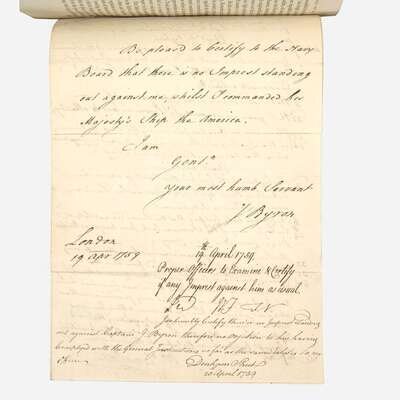 Be pleased to Certify to the Navy
Board that there is no Imprest standing
out against me, whilst I commanded his
Majesty's Ship the America.
I am
Gentⁿ
Your most humb Servant
J. Byron
London
19 Apr 1759
19th April 1759.
Proper Officers to Examine & Certify
if any Imprest against him as usual.
I humbly Certify there is no Imprest standing
out against Captain J Byron therefore no objection to his having
complyed with the General Instructions so far as the same relates to my
Office.
20 April 1759